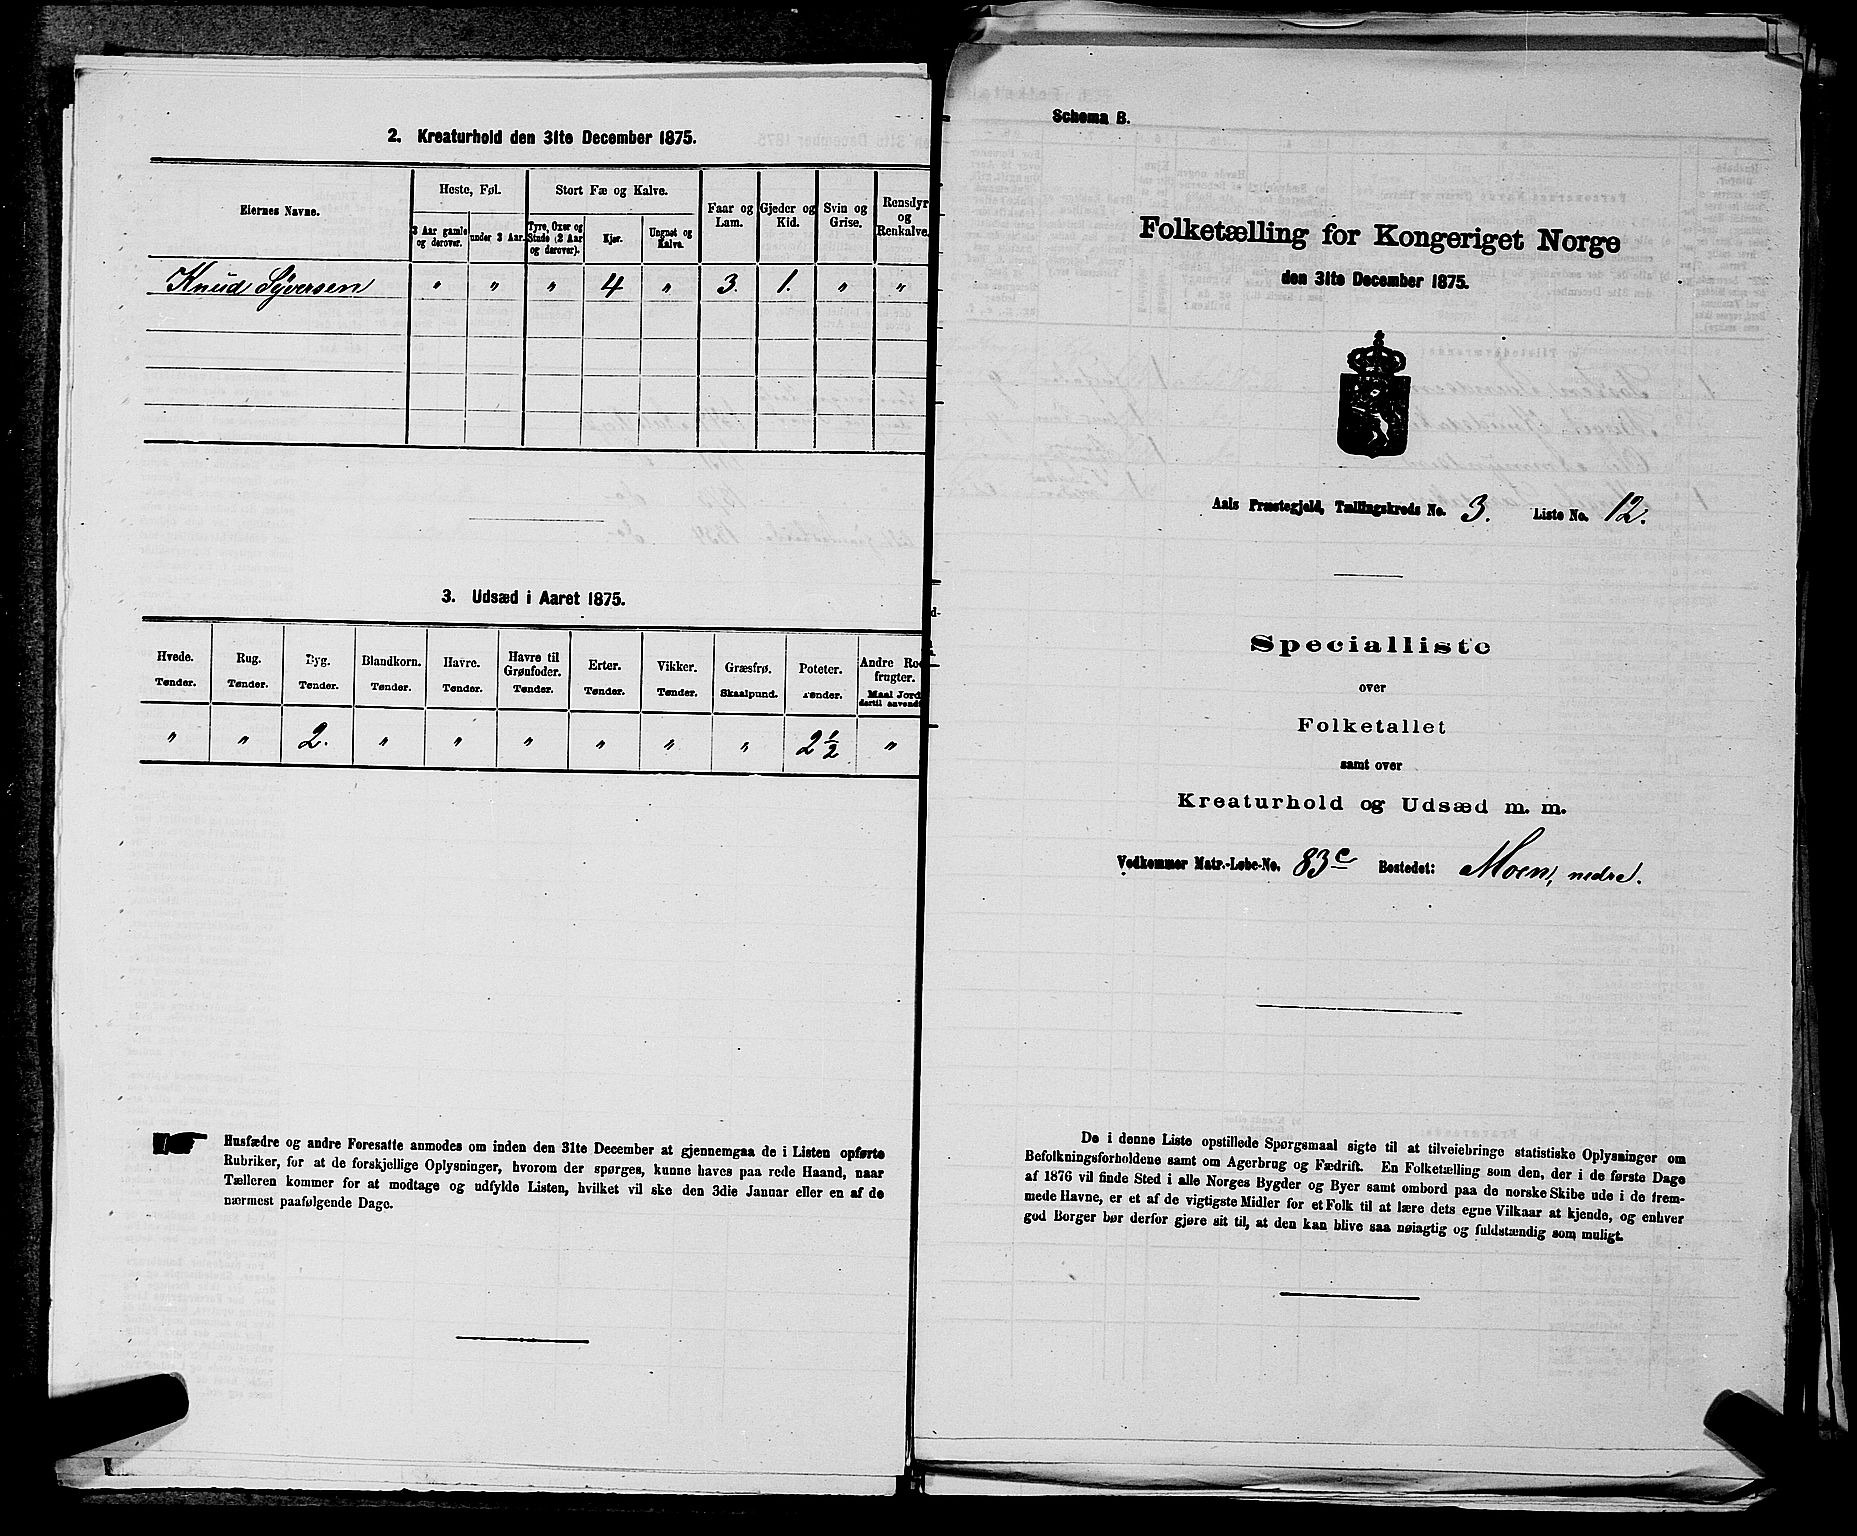 2. Kreaturhold den 31te December 1875.
Eiernes Navne.
Heste, Føl.
Stort Fæ og Kalve.
Faar og Lam.
Gjeder og Kid.
Svin og Grise.
Rensdyr og Renkalve.
3 Aar gamle og derover.
under 3 Aar.
Tyre, Oxer og Stude (2 Aar og derover).
Kjør.
Ungnøt og Kalve.
Knud Syversen " " " 4 " 3. 1. " "
3. Udsæd i Aaret 1875.
Hvede. Rug. Byg. Blandkorn. Havre. Havre til Grønfoder. Erter. Vikker. Græsfrø. Poteter. Andre Ro- frugter.
Tønder. Tønder. Tønder. Tønder. Tønder. Tønder. Tønder. Tønder. Skaalpund. Tønder. Maal Jord dertil anvendt
" " 2. " " " " " " 2 1/2 "
Husfædre og andre Foresatte anmodes om inden den 31te December at gjennemgaa de i Listen opførte
Rubriker, for at de forskjellige Oplysninger, hvorom der spørges, kunne haves paa rede Haand, naar
Tælleren kommer for at modtage og udfylde Listen, hvilket vil ske den 3die Januar eller en af de
nærmest paafølgende Dage.
Schema B.
Folketælling for Kongeriget Norge
den 31te December 1875.
Aals Præstegjeld, Tællingskreds No. 3. Liste No. 12.
Specialliste
over
Folketallet
samt over
Kreaturhold og Udsæd m. m.
Vedkommer Matr.-Løbe-No. 83c Bostedet: Moen, nedre.
De i denne Liste opstillede Spørgsmaal sigte til at tilveiebringe statistiske Oplysninger om
Befolkningsforholdene samt om Agerbrug og Fædrift. En Folketælling som den, der i de første Dage
af 1876 vil finde Sted i alle Norges Bygder og Byer samt ombord paa de norske Skibe ude i de frem-
mede Havne, er et af de vigtigste Midler for et Folk til at lære dets egne Vilkaar at kjende, og enhver
god Borger bør derfor gjøre sit til, at den kan blive saa nøiagtig og fuldstændig som muligt.